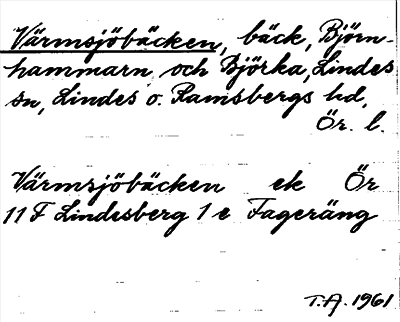 Värmsjöbäcken, bäck, Björn-
hammarn och Björka, Lindes
sn, Lindes o. Ramsbergs hd,
Ör. l.
Värmsjöbäcken ek Ör
11 F Lindesberg 1 e Fageräng
T.A. 1961